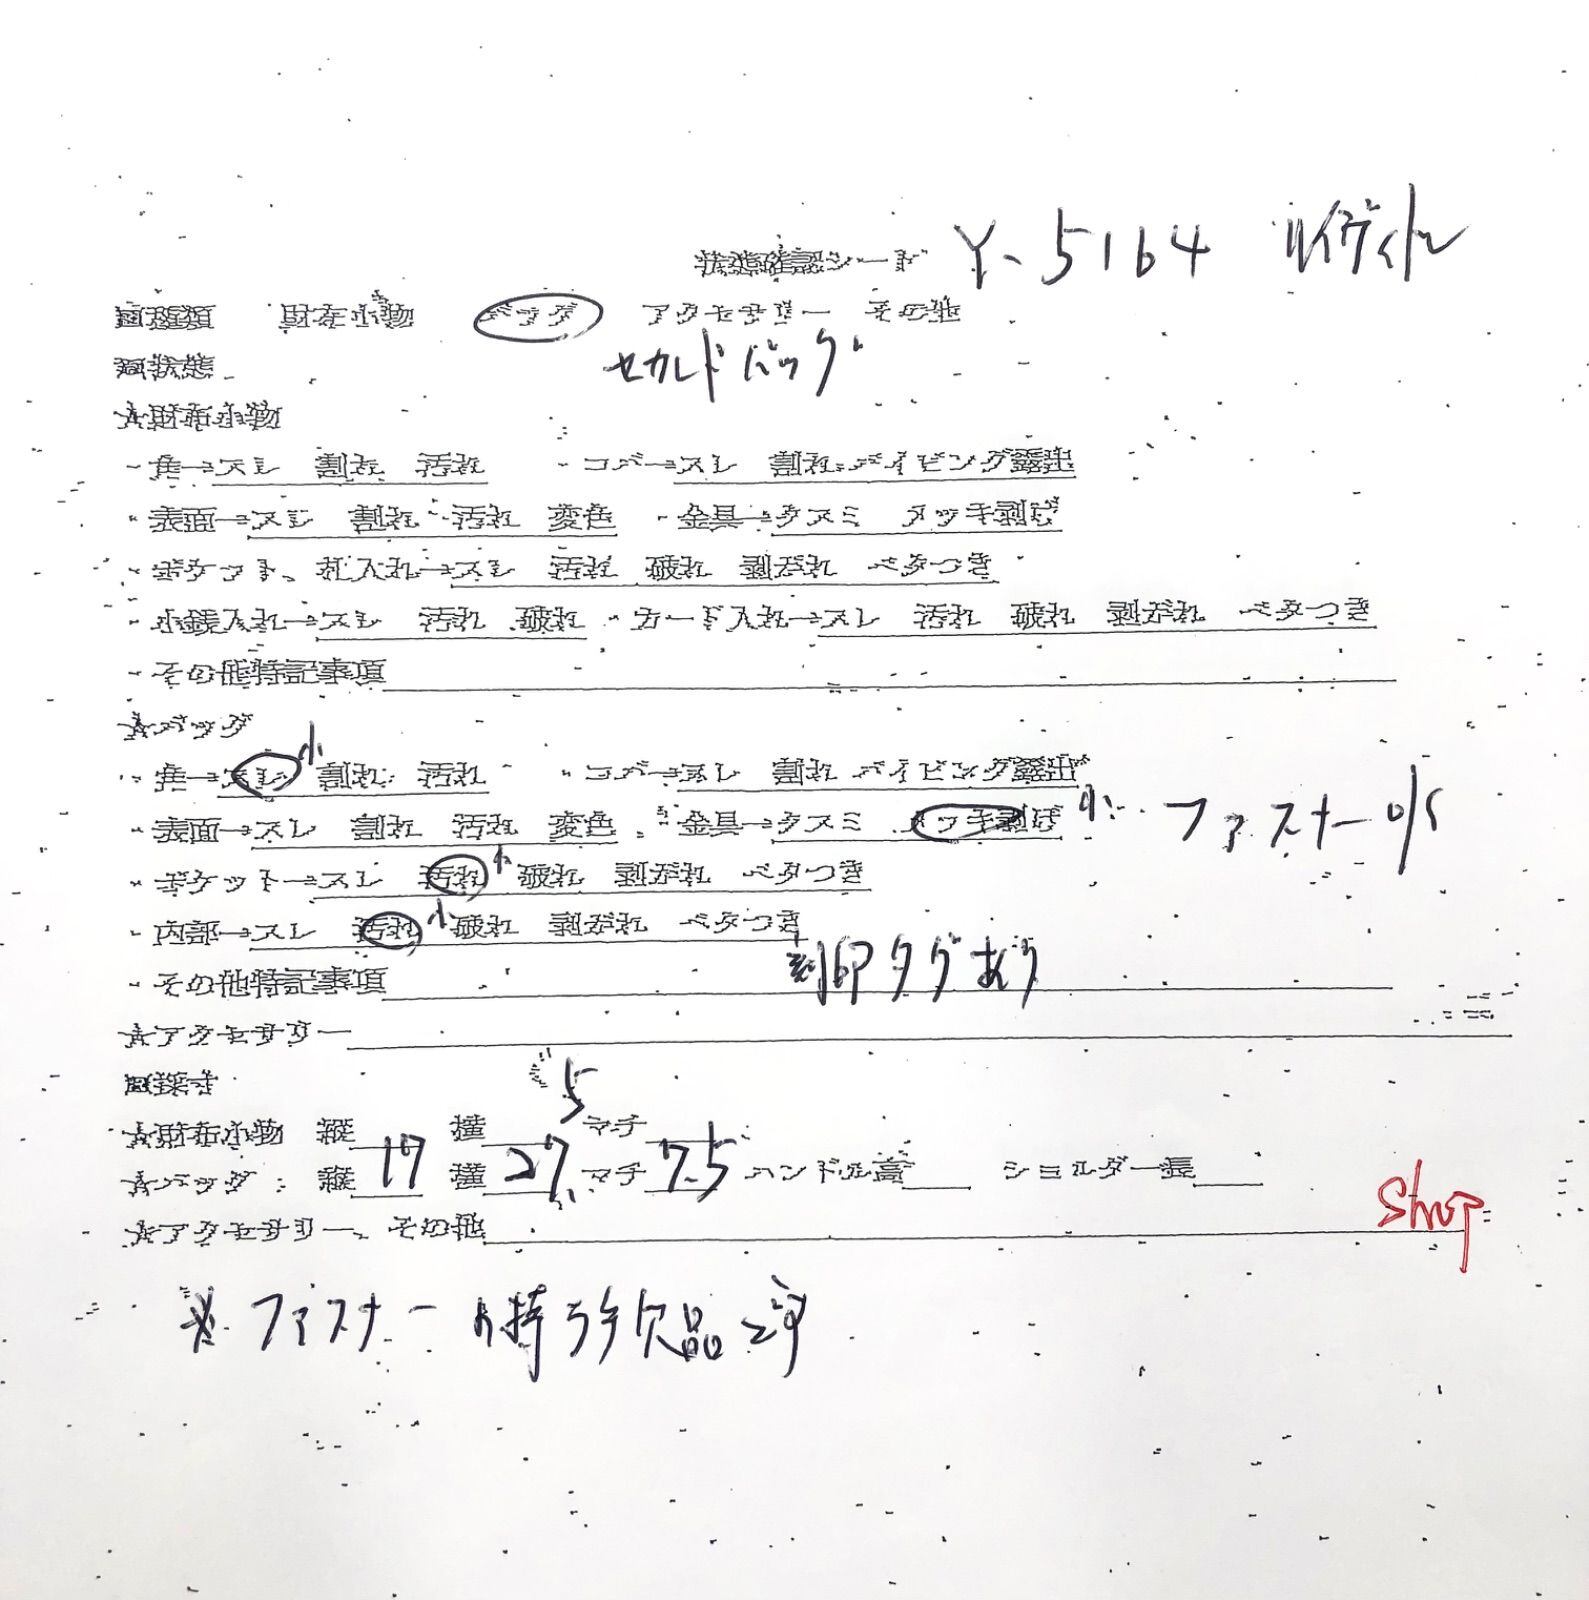 状態確認シート Y-5164 ルイヴィトン
■種類 財布小物 バッグ アクセサリー その他
■状態 セカンドバッグ
★財布小物
・角→スレ 割れ 汚れ ・コバ→スレ 割れ パイピング露出
・表面→スレ 割れ 汚れ 変色 ・金具→クスミ メッキ剥げ
・ポケット、札入れ→スレ 汚れ 破れ 剥がれ ベタつき
・小銭入れ→スレ 汚れ 破れ ・カード入れ→スレ 汚れ 破れ 剥がれ ベタつき
・その他特記事項
★バッグ
・角→スレ 小 割れ 汚れ ・コバ→スレ 割れ パイピング露出
・表面→スレ 割れ 汚れ 変色 ・金具→クスミ メッキ剥げ 小 ファスナー
・ポケット→スレ 汚れ 小 破れ 剥がれ ベタつき
・内部→スレ 汚れ 小 破れ 剥がれ ベタつき
・その他特記事項 刻印タグあり
★アクセサリー
■採寸
5
★財布小物 縦 横 マチ
★バッグ 縦 17 横 27 マチ 7.5 ハンドル高 ショルダー長
★アクセサリー、その他
※ファスナー 持ち手欠品